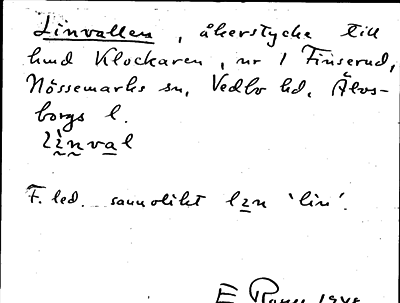 Linvallen, åkerstycke till
hmd Klockaren, nr 1 Finserud,
Nössemarks sn, Vedbo hd, Älvs-
borgs l.
linval
F. led. sannolikt lin 'lin'.
E